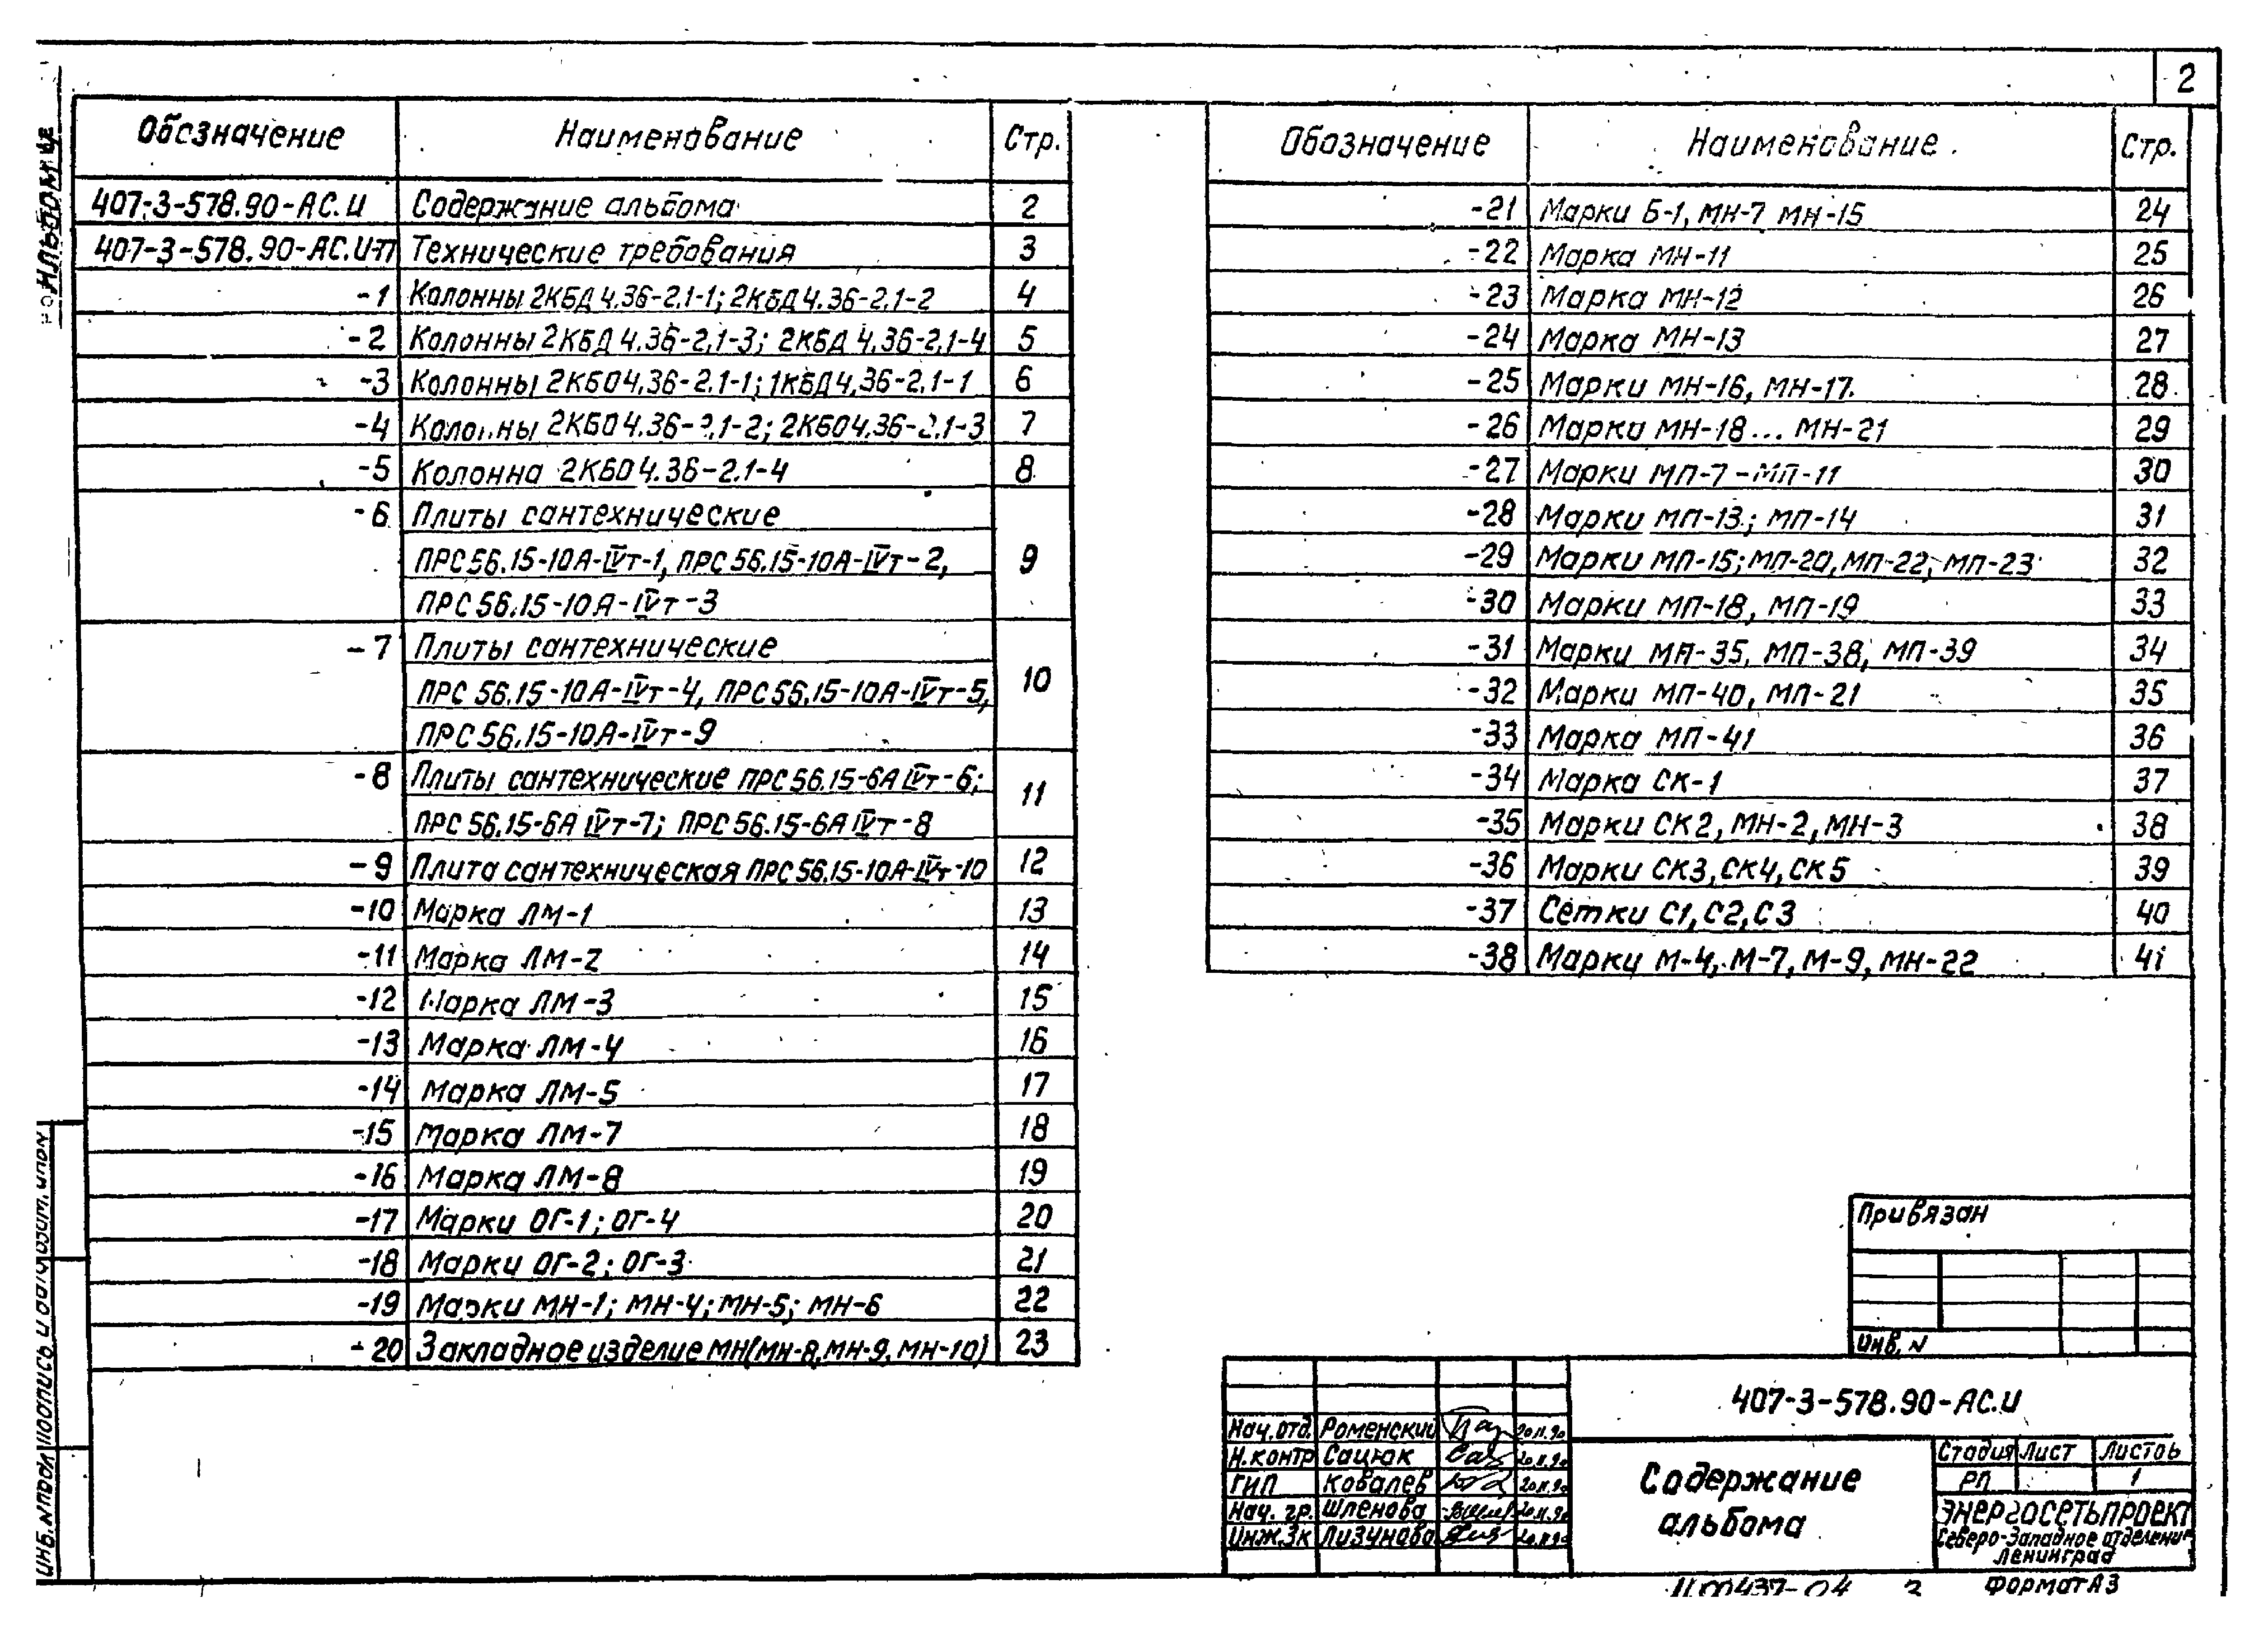 2
Обозначение Наименование Стр.
407-3-578.90-АС.И Содержание альбома 2
407-3-578.90-АС.И-ТТ Технические требования 3
-1 Колонны 2КБД4.36-2.1-1; 2КБД4.36-2.1-2 4
-2 Колонны 2КБД4.36-2.1-3; 2КБД4.36-2.1-4 5
-3 Колонны 2КБО4.36-2.1-1; 1КБД4.36-2.1-1 6
-4 Колонны 2КБО4.36-2.1-2; 2КБО4.36-2.1-3 7
-5 Колонна 2КБО4.36-2.1-4 8
-6 Плиты сантехнические
ПРС56.15-10А-IVт-1, ПРС56.15-10А-IVт-2, 9
ПРС56.15-10А-IVт-3
-7 Плиты сантехнические
ПРС56.15-10А-IVт-4, ПРС56.15-10А-IVт-5, 10
ПРС56.15-10А-IVт-9
-8 Плиты сантехнические ПРС56.15-6АIVт-6; 11
ПРС56.15-6АIVт-7; ПРС56.15-6АIVт-8
-9 Плита сантехническая ПРС56.15-10А-IVт-10 12
-10 Марка ЛМ-1 13
-11 Марка ЛМ-2 14
-12 Марка ЛМ-3 15
-13 Марка ЛМ-4 16
-14 Марка ЛМ-5 17
-15 Марка ЛМ-7 18
-16 Марка ЛМ-8 19
-17 Марки ОГ-1; ОГ-4 20
-18 Марки ОГ-2; ОГ-3 21
-19 Марки МН-1; МН-4; МН-5; МН-6 22
-20 Закладное изделие МН(МН-8, МН-9, МН-10) 23
Обозначение Наименование Стр.
-21 Марки Б-1, МН-7 МН-15 24
-22 Марка МН-11 25
-23 Марка МН-12 26
-24 Марка МН-13 27
-25 Марки МН-16, МН-17. 28
-26 Марки МН-18... МН-21 29
-27 Марки МП-7-МП-11 30
-28 Марки МП-13; МП-14 31
-29 Марки МП-15; МП-20, МП-22, МП-23 32
-30 Марки МП-18, МП-19 33
-31 Марки МП-35, МП-38, МП-39 34
-32 Марки МП-40, МП-21 35
-33 Марка МП-41 36
-34 Марка СК-1 37
-35 Марки СК2, МН-2, МН-3 38
-36 Марки СК3, СК4, СК5 39
-37 Сетки С1, С2, С3 40
-38 Марки М-4, М-7, М-9, МН-22 41
Привязан
Инв. N
407-3-578.90-АС.И
Нач. отд. Роменский 20.11.90
Н.контр Сацюк 20.11.90
ГИП Ковалев 20.11.90
Нач. гр. Шленова 20.11.90
Инж.3к Лизунова 20.11.90
Содержание
альбома
Стадия Лист Листов
РП 1
ЭНЕРГОСЕТЬПРОЕКТ
Северо-Западное отделение
Ленинград
Формат А3